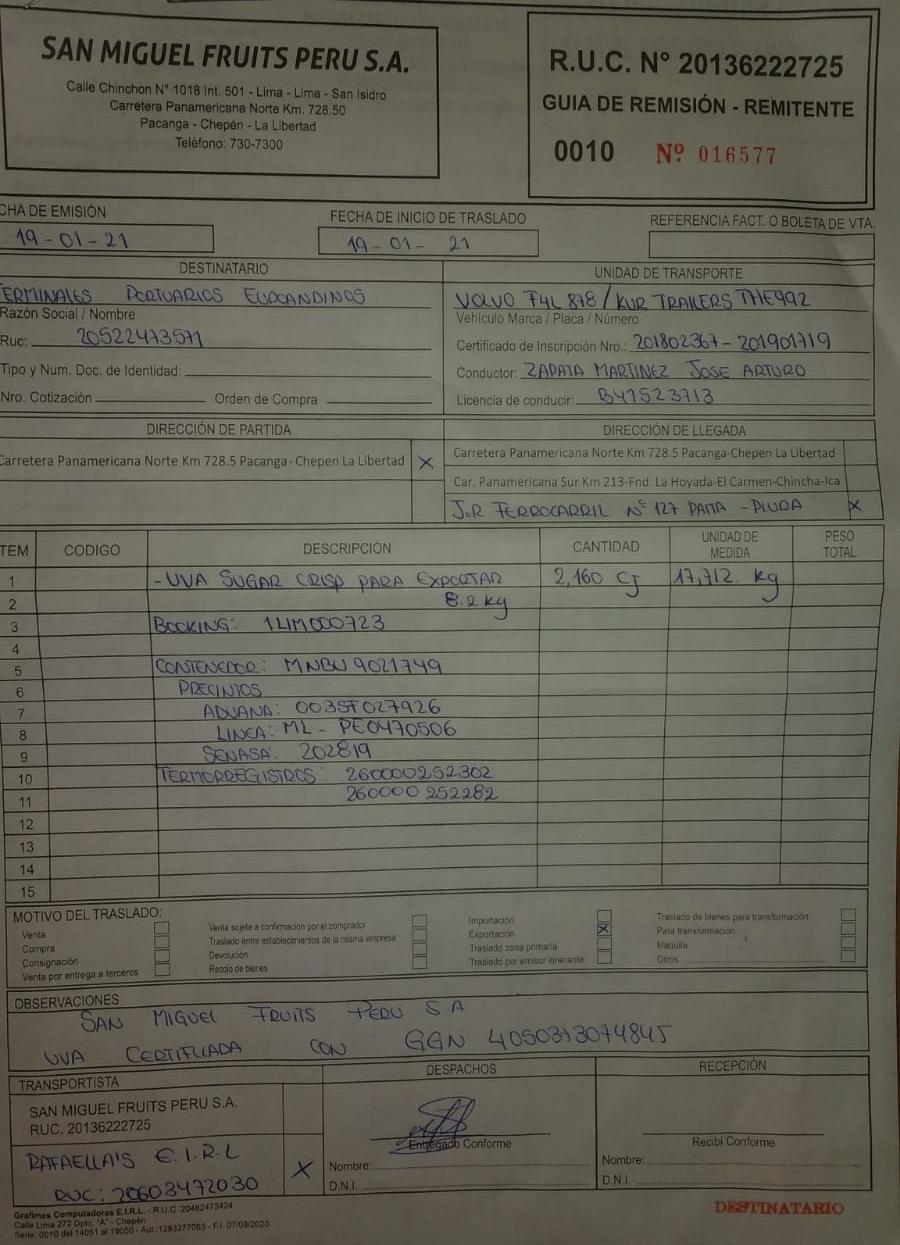 SAN MIGUEL FRUITS PERU S.A.
Calle Chinchon N° 1018 Int. 501 - Lima - Lima - San Isidro
Carretera Panamericana Norte Km. 728.50
Pacanga - Chepén - La Libertad
Teléfono: 730-7300
R.U.C. N° 20136222725
GUIA DE REMISIÓN - REMITENTE
0010 Nº 016577
CHA DE EMISIÓN
19-01-21
FECHA DE INICIO DE TRASLADO
19-01-21
REFERENCIA FACT. O BOLETA DE VTA.
DESTINATARIO
ERMINALES PORTUARIOS EUROANDINOS
Razón Social / Nombre
Ruc: 20522473571
Tipo y Num. Doc. de Identidad:
Nro. Cotización Orden de Compra
UNIDAD DE TRANSPORTE
VOLVO F4L 878 / KUR TRAILERS THE992
Vehículo Marca / Placa / Número
Certificado de Inscripción Nro.: 201802367 - 201901719
Conductor: ZAPATA MARTINEZ JOSE ARTURO
Licencia de conducir: B41523713
DIRECCIÓN DE PARTIDA
Carretera Panamericana Norte Km 728.5 Pacanga-Chepen La Libertad X
DIRECCIÓN DE LLEGADA
Carretera Panamericana Norte Km 728.5 Pacanga-Chepen La Libertad
Car. Panamericana Sur Km 213-Fnd. La Hoyada-El Carmen-Chincha-Ica
J.R FERROCARRIL N° 127 PAITA - PIURA X
TEM CODIGO DESCRIPCIÓN CANTIDAD UNIDAD DE MEDIDA PESO TOTAL
1 -UVA SUGAR CRISP PARA EXPORTAR 2,160 CJ 17,712. kg
2 8.2 kg
3 BOOKING: 1LIM000723
4
5 CONTENEDOR: MNBU 9021749
6 PRECINTOS
7 ADUANA: 0035F027926
8 LINEA: ML - PE0470506
9 SENASA: 202819
10 TERMORREGISTROS: 260000252302
11 260000 252282
12
13
14
15
MOTIVO DEL TRASLADO:
Venta
Compra
Consignación
Venta por entrega a terceros
Venta sujeta a confirmación por el comprador
Traslado entre establecimientos de la misma empresa
Devolución
Recojo de bienes
Importación
Exportación X
Traslado zona primaria
Traslado por emisor itinerante
Traslado de bienes para transformación
Para transformación
Maquila
Otros
OBSERVACIONES
SAN MIGUEL FRUITS PERU S A
UVA CERTIFICADA CON GGN 4050373074845
TRANSPORTISTA
SAN MIGUEL FRUITS PERU S.A.
RUC. 20136222725
RAFAELLA'S E.I.R.L
RUC: 20603472030 X
DESPACHOS
Entregado Conforme
Nombre:
D.N.I.
RECEPCIÓN
Recibí Conforme
Nombre:
D.N.I.
Grafimas Computadoras E.I.R.L. - R.U.C. 20482473424
Calle Lima 272 Dpto. "A" - Chepén
Serie: 0010 del 14051 al 19050 - Aut.:1283277063 - F.I. 07/08/2020
DESTINATARIO